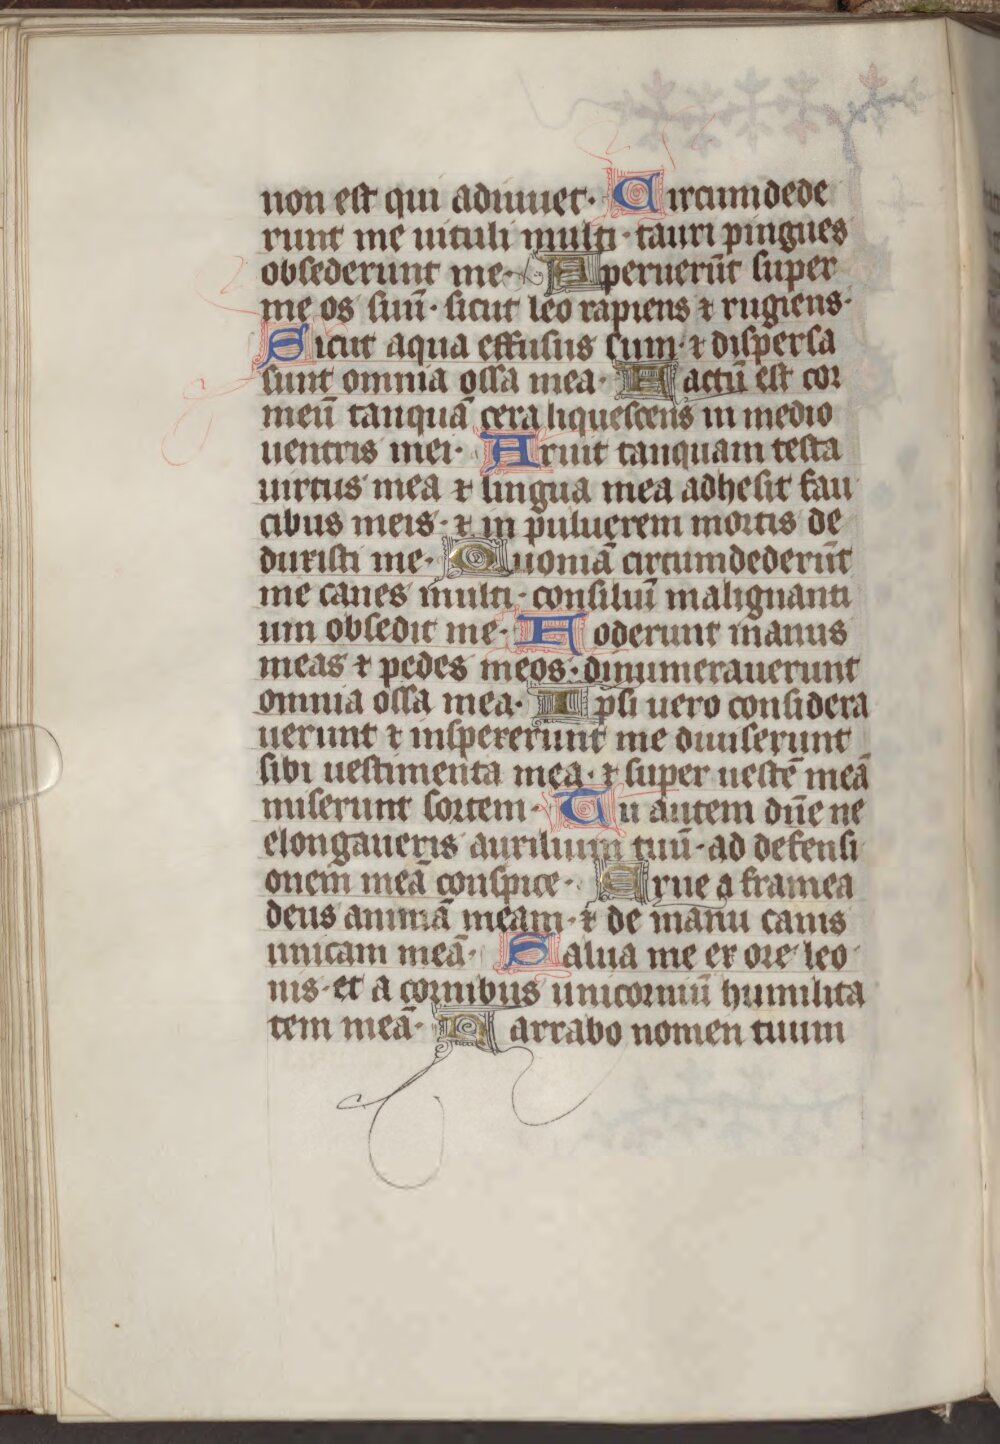 non est qui adiuuet · Circumdede
runt me uituli multi · tauri pingues
obsederunt me · Aperuerūt super
me os suū · sicut leo rapiens ⁊ rugiens ·
Sicut aqua effusus sum · ⁊ dispersa
sunt omnia ossa mea · Factū est cor
meū tanquā cera liquescens in medio
uentris mei · Aruit tanquam testa
uirtus mea ⁊ lingua mea adhesit fau
cibus meis · ⁊ in puluerem mortis de
duxisti me · Quoniā circumdederūt
me canes multi · consiliū malignanti
um obsedit me · Foderunt manus
meas ⁊ pedes meos · dinumerauerunt
omnia ossa mea · Ipsi uero considera
uerunt ⁊ inspexerunt me diuiserunt
sibi uestimenta mea · ⁊ super uestē meā
miserunt sortem · Tu autem dn̄e ne
elongaueris auxilium tuū · ad defensi
onem meā conspice · Erue a framea
deus animā meam · ⁊ de manu canis
unicam meā · Salua me ex ore leo
nis · et a cornibus unicorniū humilita
tem meā · Narrabo nomen tuum